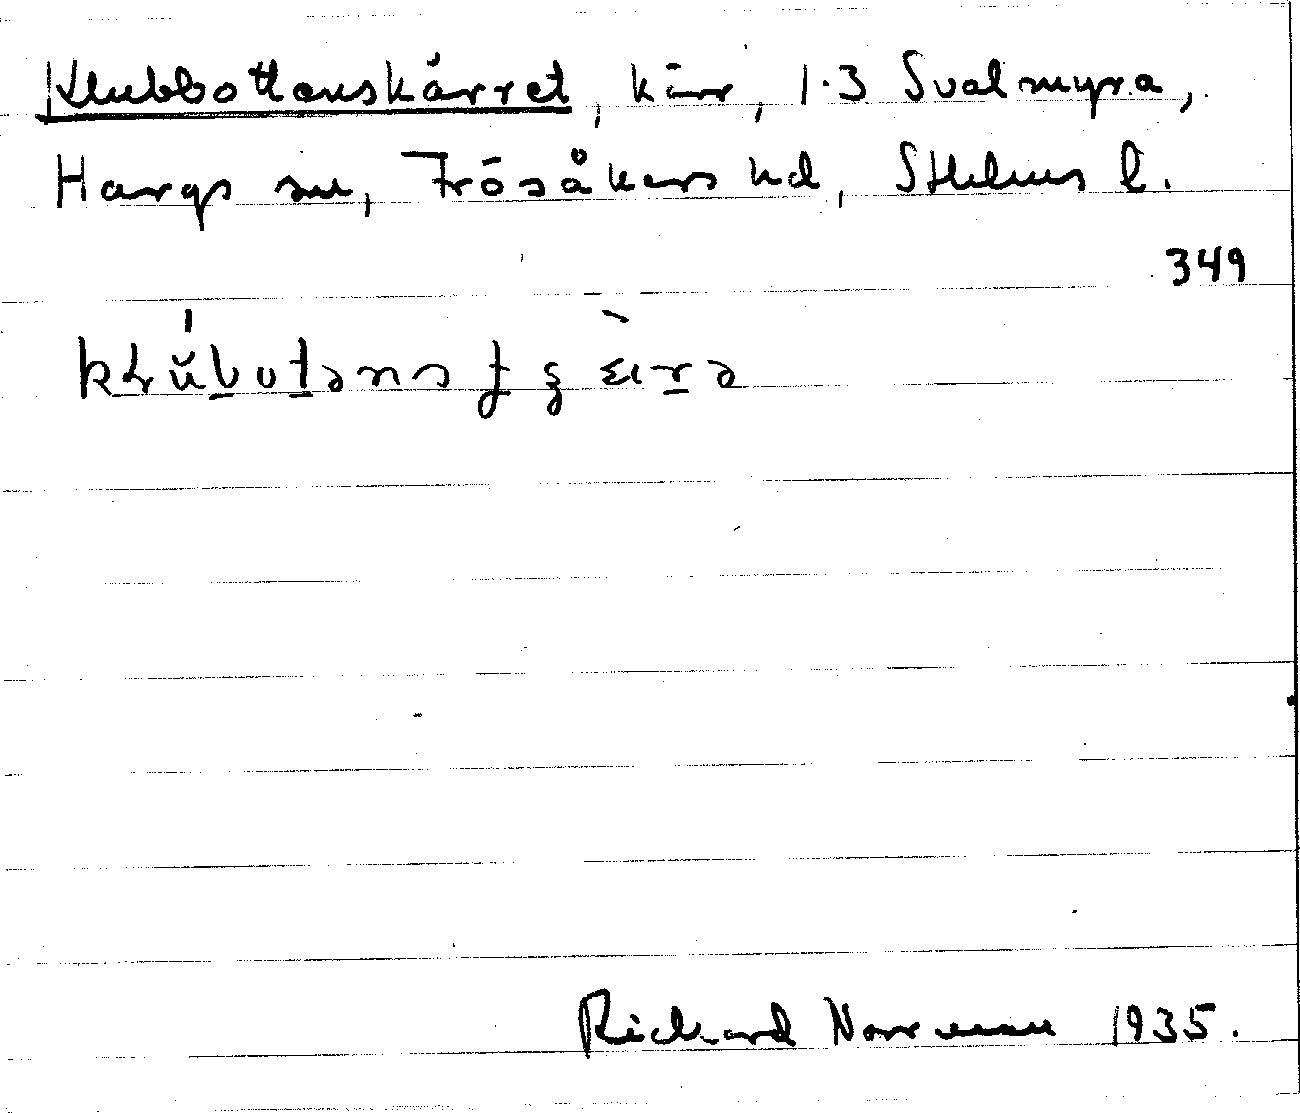 Klubbottenskärret, kärr, 1.3 Svalmyra,
Hargs sn, Frösåkers hd, Sthlms l.
349
Richard Norrman 1935.